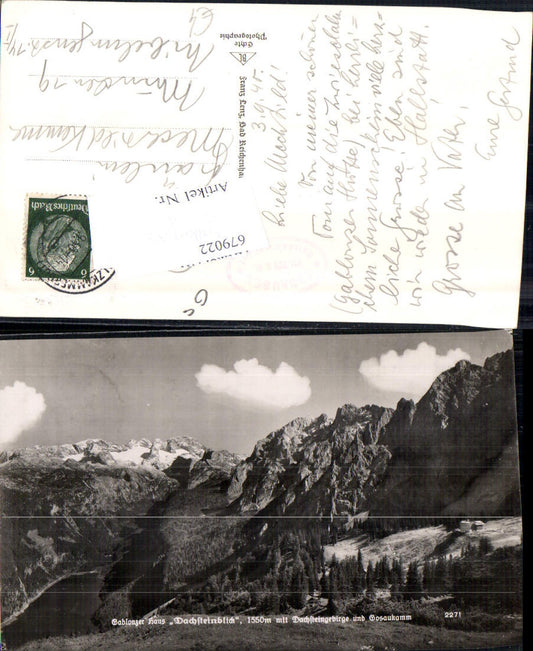 3.9.40.
Liebe Mechthild!
Von meiner schönen
Tour auf die Zwieselalm
(Gablonzer Hütte) bei herrli=
chem Sonnenschein viele herz=
liche Grüsse! Eben sind
wir wieder in Hallstatt.
Grüsse an Vater!
Eure Gertrud
Echte
Photographie
Franz Lenz, Bad Reichenhall
Fräulein
München 19
Nibelungenstr.
Deutsches Reich
6
6
Artikel Nr.
679022
Gablonzer Haus „Dachsteinblick", 1550m mit Dachsteingebirge und Gosaukamm
2271